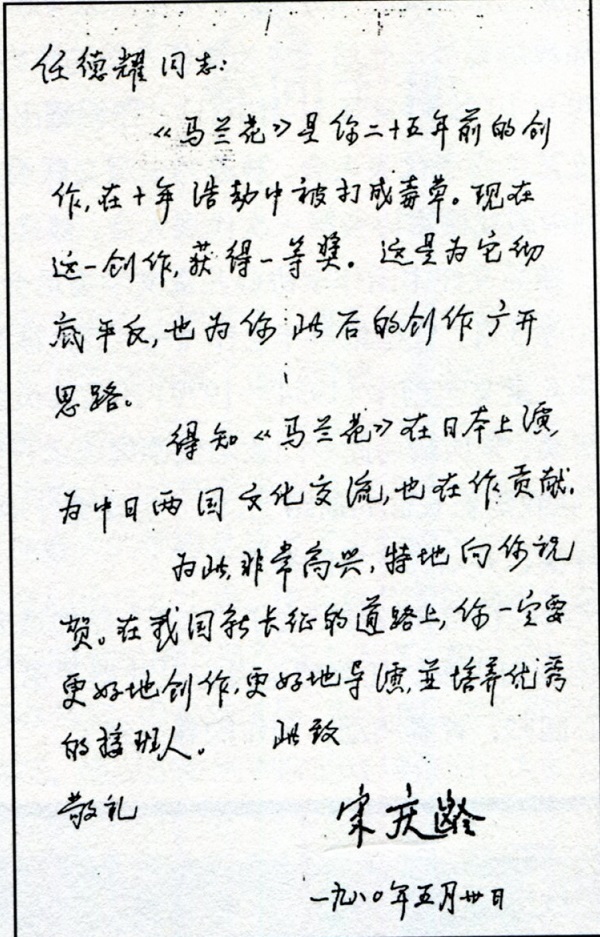 任德耀同志:
《马兰花》是你二十五年前的创
作,在十年浩劫中被打成毒草。现在
这一创作,获得一等奖。这是为它彻
底平反,也为你此后的创作广开
思路。
得知《马兰花》在日本上演,
为中日两国文化交流,也在作贡献.
为此,非常高兴,特地向你祝
贺。在我国新长征的道路上,你一定要
更好地创作,更好地导演,並培养优秀
的接班人。 此致
敬礼
宋庆龄
一九八〇年五月卅日